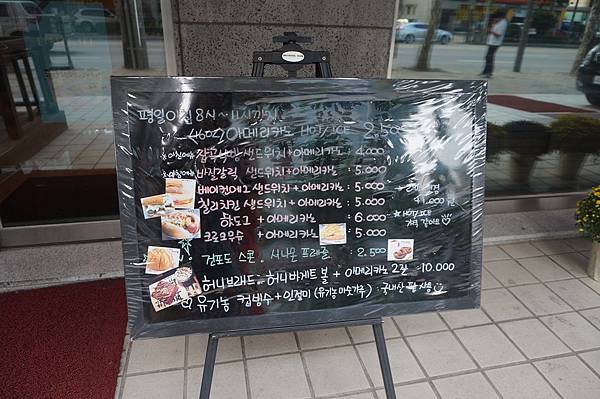 평일아침 8시~11시까지
(4oz) 아메리카노 HOT/ICE 2.500
*아침메뉴 잡곡냉장 샌드위치+아메리카노 : 4.000
*아침메뉴 바질갈릭 샌드위치+아메리카노 : 5.000
베이컨에그 샌드위치+아메리카노 : 5.000
칠리치킨 샌드위치+아메리카노 : 5.000
핫도그 +아메리카노 : 6.000
크로크무슈 +아메리카노 : 5.000
+1.000원
*HOT/ICE 가격 같아요
건포도 스콘. 시나몬 프레즐 : 2.500
허니브레드. 허니바게트볼+아메리카노 2잔 -10.000
유기농 컵빙수+인절미(유기농 미숫가루) : 국내산 팥 사용